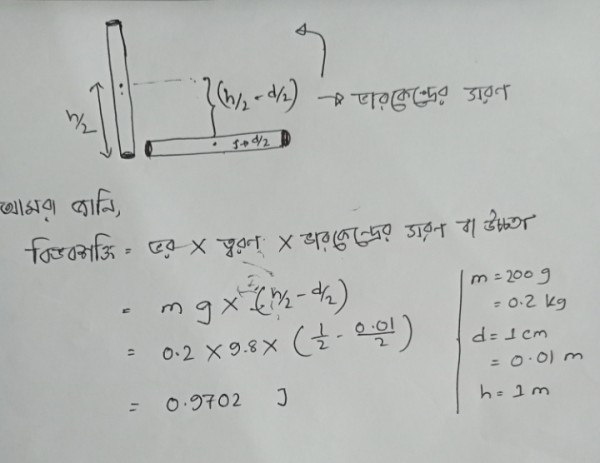 h/2
(h/2 - d/2) → ভারকেন্দ্রের সরণ
d/2
আমরা জানি,
বিভবশক্তি = ভর × ত্বরণ × ভারকেন্দ্রের সরণ বা উচ্চতা
= mg × (h/2 - d/2)
= 0.2 × 9.8 × (1/2 - 0.01/2)
= 0.9702 J
m = 200 g
= 0.2 kg
d = 1 cm
= 0.01 m
h = 1 m